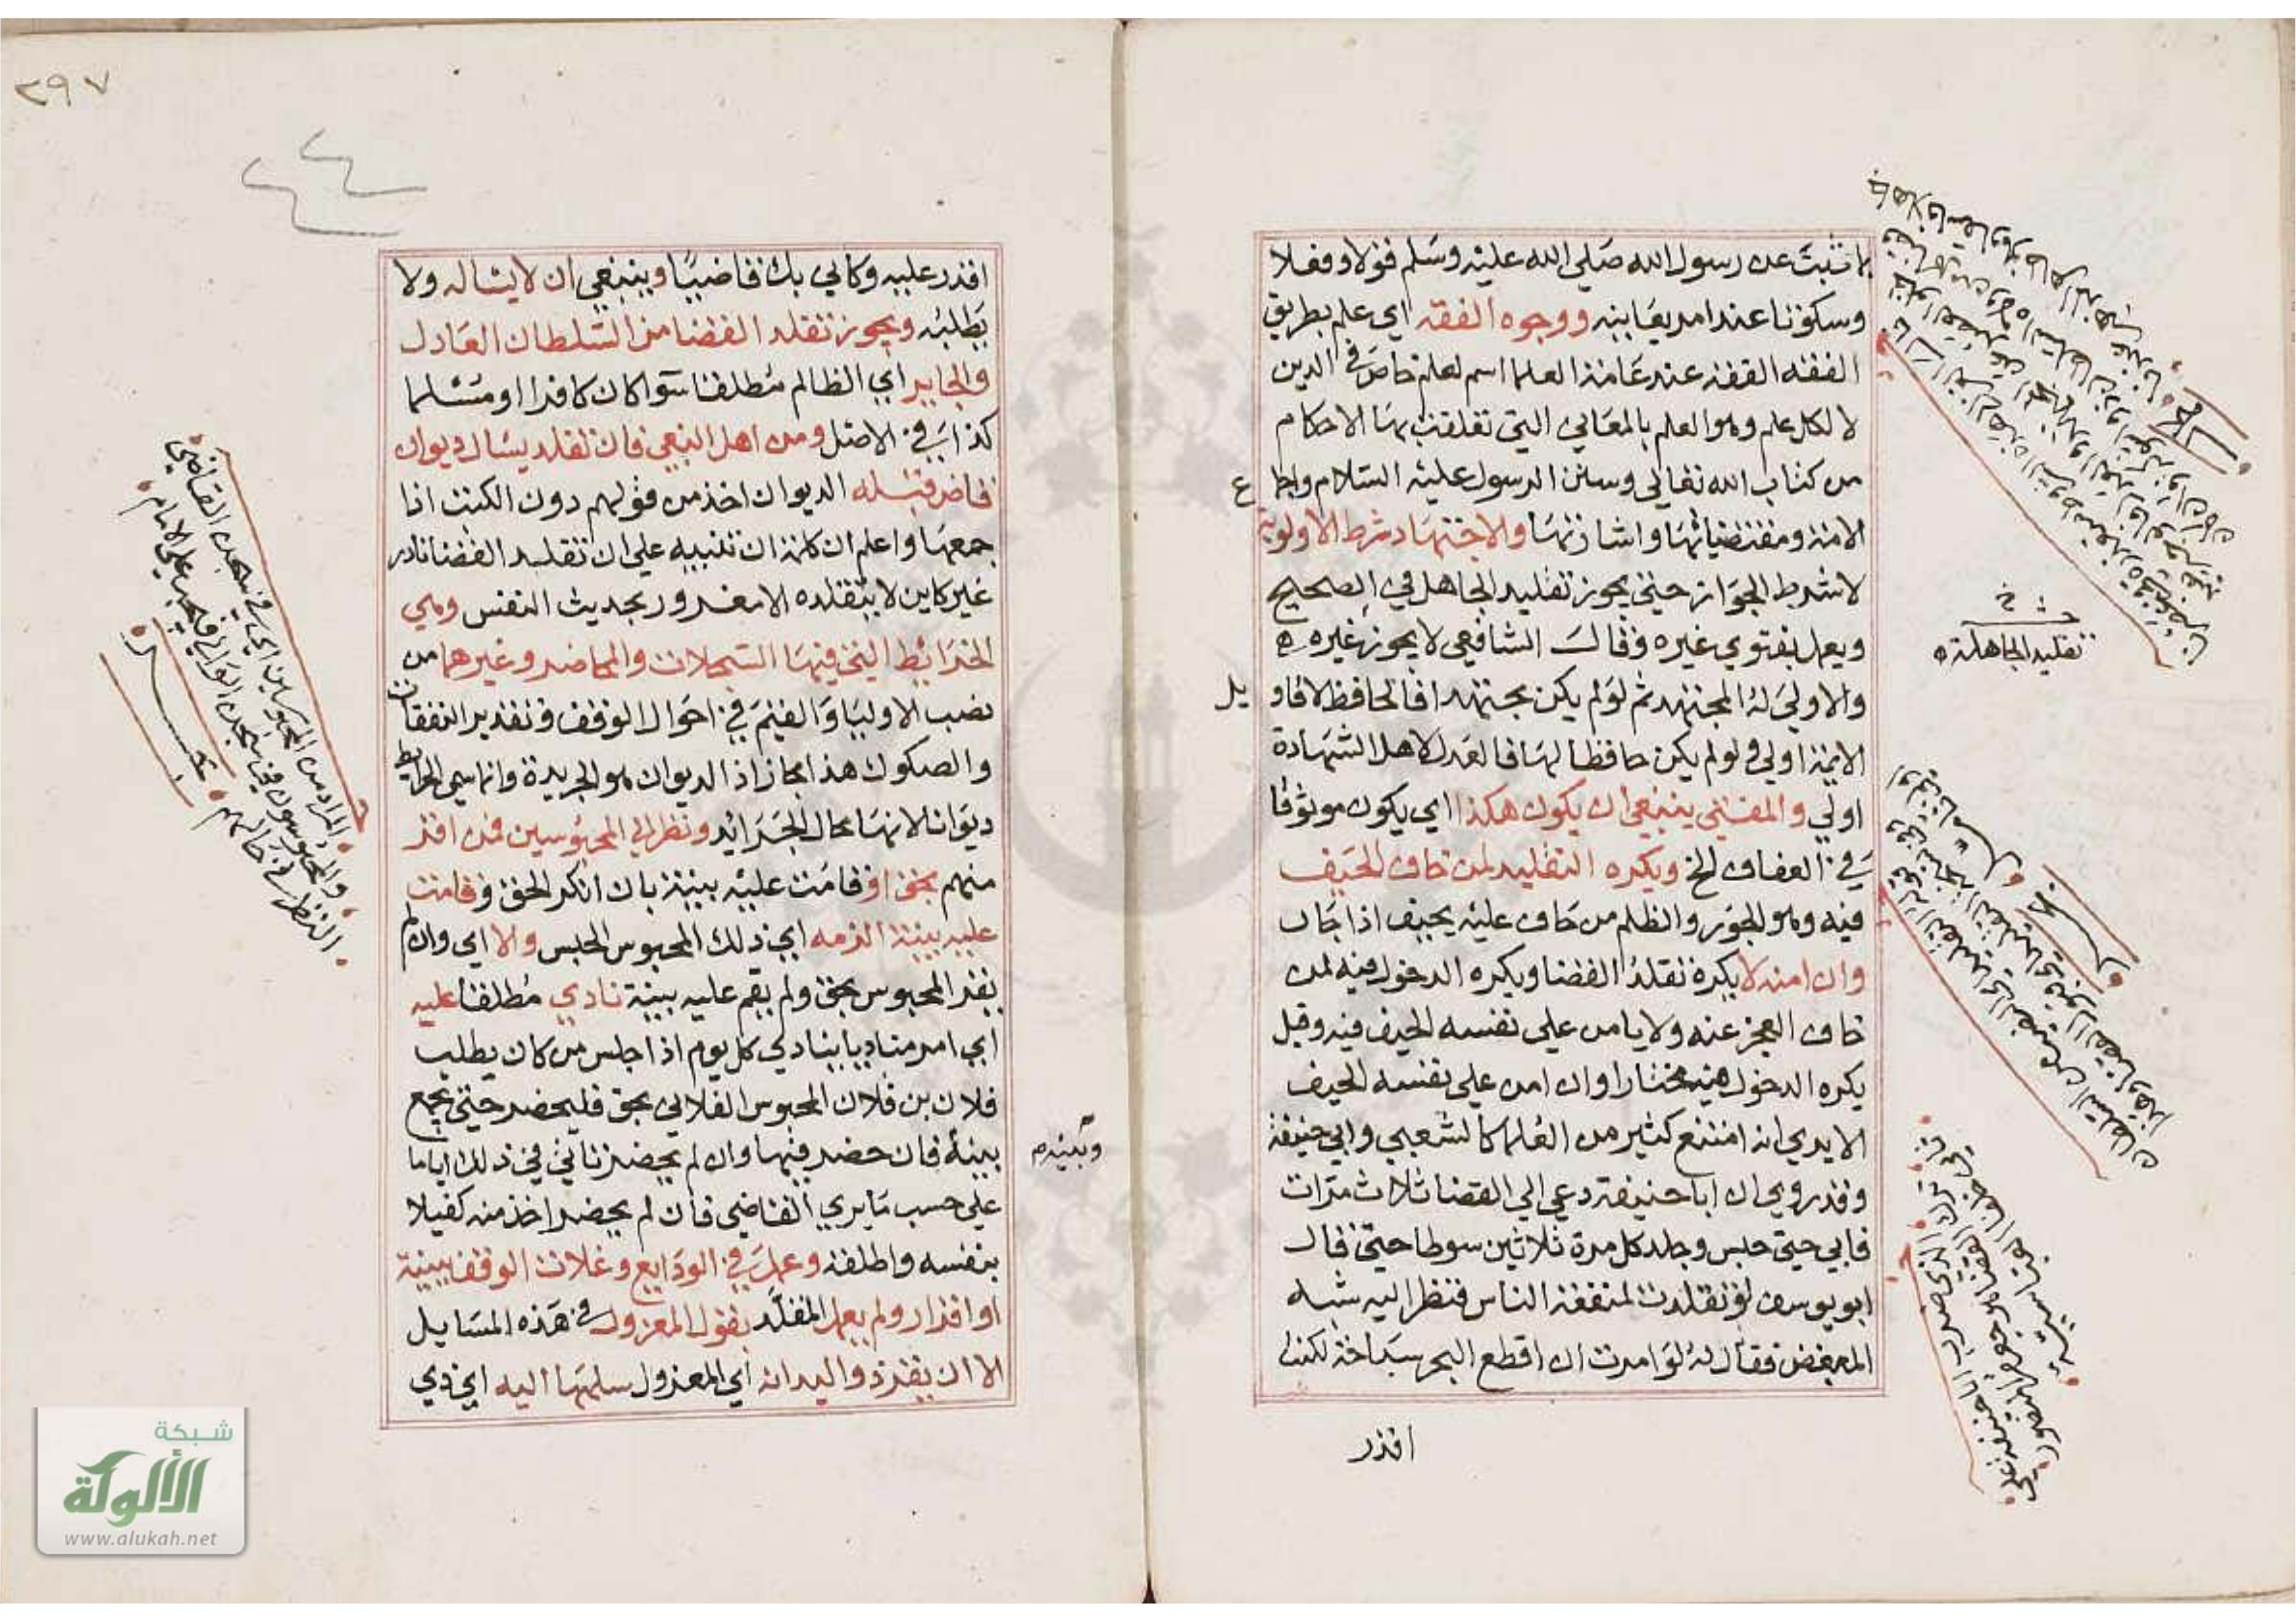 بما ثبت عن رسول الله صلي الله عليه وسلم قولا وفعلا
وسكوتا عند امر يعاينه ووجوه الفقه اي علم بطريق
الفقه الفقه عند عامة العلما اسم لعلم خاص في الدين
لا لكل علم وهو العلم بالمعاني التي تعلقت بها الاحكام
من كتاب الله تعالي وسنن الرسول عليه السلام واجما
ع
الامة ومقتضياتها واشاراتها والاجتهاد شرط الاولوية
لا شرط الجواز حتي يجوز تقليد الجاهل في الصحيح
ويعمل بفتوي غيره وقال الشافعي لا يجوز غيره
والاولي له المجتهد ثم لو لم يكن مجتهدا فالحافظ لاقاو
يل
الايمة اولي ولو لم يكن حافظا لها فالعدل لاهل الشهادة
اولي والمفتي ينبغي ان يكون هكذا اي يكون موثوقا
في العفاف الخ ويكره التقليد لمن خاف الحيف
فيه وهو الجور والظلم من حاف عليه يحيف اذا جار
وان امنه لا يكره تقلد القضا ويكره الدخول فيه لمن
خاف العجز عنه ولا يامن علي نفسه الحيف فيه وقيل
يكره الدخول فيه مختارا وان امن علي نفسه الحيف
الا يري انه امتنع كثير من العلما كالشعبي وابي حنيفة
وقد روي ان ابا حنيفة دعي الي القضا ثلاث مرات
فابي حتي حبس وجلد كل مرة ثلاثين سوطا حتي قال
ابو يوسف لو تقلدت لمنفعة الناس فنظر اليه شبه
المبغض فقال له لو امرت ان اقطع البحر سباحة لكنت
اقدر
تقليد الجاهل
٣٩٧
٤٤
اقدر عليه وكاني بك قاضيا وينبغي ان لا يساله ولا
يطلبه ويجوز تقلد القضا من السلطان العادل
والجاير اي الظالم مطلقا سوا كان كافرا او مسلما
كذا في الاصل ومن اهل البغي فان تقلد يسال ديوان
قاض قبله الديوان اخذ من قولهم دون الكتب اذا
جمعها واعلم ان كلمة ان تنبيه علي ان تقليد القضا نادر
غير كاين لا يتقلده الا مغرور بحديث النفس وهي
الخرائط التي فيها السجلات والمحاضر وغيرهما من
نصب الاوليا والقيم في احوال الوقف وتقدير النفقات
والصكوك هذا مجاز اذ الديوان هو الجريدة وانما سمي الخرايط
ديوانا لانها محال الجرائد ونظر الي المحبوسين فمن اقر
منهم بحق او قامت عليه بينة بان انكر الحق وقامت
عليه بينة الزمه اي ذلك المحبوس الحبس والا اي وان لم
يقر المحبوس بحق ولم يقم عليه بينة نادي مطلقا عليه
اي امر مناديا ينادي كل يوم اذا جلس من كان يطلب
فلان بن فلان المحبوس الفلاني بحق فليحضر حتي يجمع
وبينه
بينه فان حضر فبها وان لم يحضر تاني في ذلك اياما
علي حسب ما يري القاضي فان لم يحضر اخذ منه كفيلا
بنفسه واطلقه وعمل في الودايع وغلات الوقف ببينة
او اقرار ولم يعمل المقلد بقول المعزول في هذه المسايل
الا ان يقر ذو اليد انه اي المعزول سلمها اليه اي ذي
المراد من المحبوسين اي في سجن القاضي
والمحبوسون في سجن الوالي فيجب علي الامام
النظر في حالهم
شبكة
الألوكة
www.alukah.net